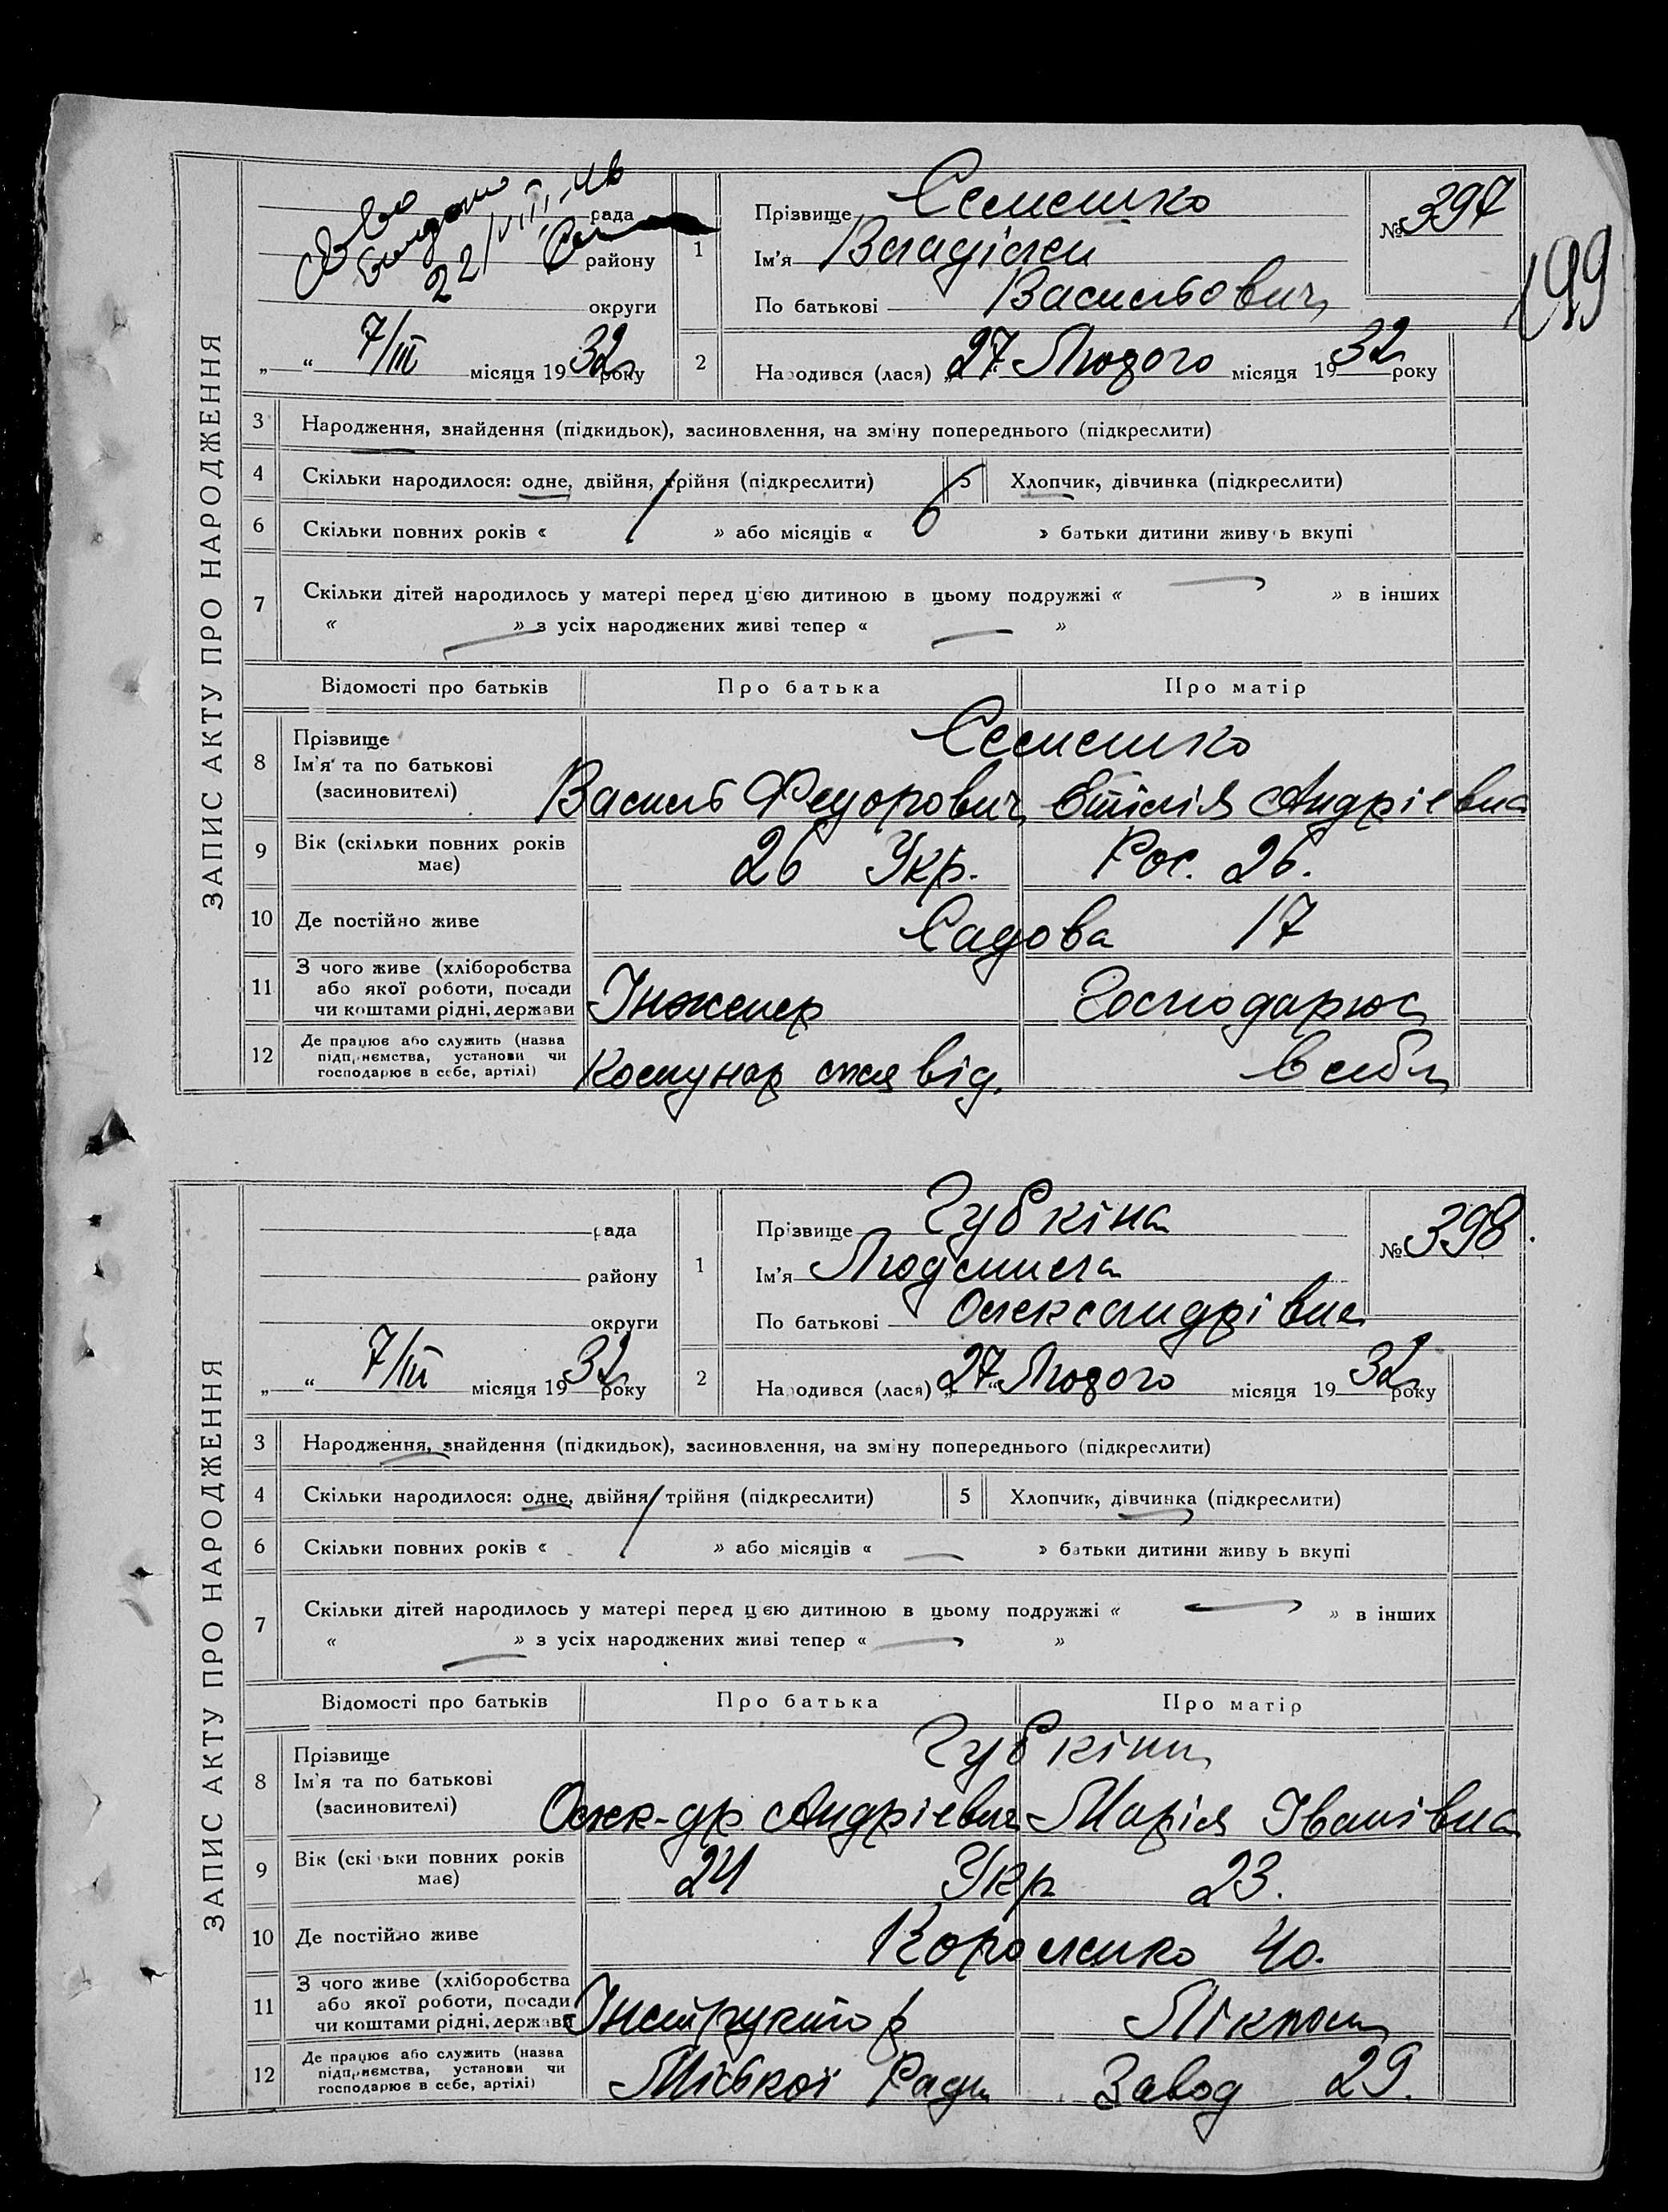 ЗАПИС АКТУ ПРО НАРОДЖЕННЯ
22/VIII-46
рада
району
округи
„ “ 7/III місяця 1932 року
1
Прізвище Семешко
Ім'я Владілен
По батькові Васильович
№ 397
199
2
Народився (лася) „27“ Лютого місяця 1932 року
3 Народження, знайдення (підкидьок), засиновлення, на зміну попереднього (підкреслити)
4 Скільки народилося: одне, двійня, трійня (підкреслити) 5 Хлопчик, дівчинка (підкреслити)
6 Скільки повних років « / » або місяців « 6 » батьки дитини живуть вкупі
7 Скільки дітей народилось у матері перед цією дитиною в цьому подружжі « — » в інших
« — » з усіх народжених живі тепер « — »
Відомості про батьків Про батька Про матір
8 Прізвище
Ім'я та по батькові
(засиновителі)
Семешко
Василь Федорович Емілія Андрієвна
9 Вік (скільки повних років має) 26 Укр. Рос. 26.
10 Де постійно живе Садова 17
11 З чого живе (хліборобства
або якої роботи, посади
чи коштами рідні, держави
Інженер
12 Де працює або служить (назва
підприємства, установи чи
господарює в себе, артілі)
Комунар від.
ЗАПИС АКТУ ПРО НАРОДЖЕННЯ
рада
району
округи
„ “ 7/III місяця 1932 року
1
Прізвище Губкіна
Ім'я Людмила
По батькові Олександрівна
№ 398.
2
Народився (лася) „27“ Лютого місяця 1932 року
3 Народження, знайдення (підкидьок), засиновлення, на зміну попереднього (підкреслити)
4 Скільки народилося: одне, двійня, трійня (підкреслити) 5 Хлопчик, дівчинка (підкреслити)
6 Скільки повних років « / » або місяців « — » батьки дитини живуть вкупі
7 Скільки дітей народилось у матері перед цією дитиною в цьому подружжі « — » в інших
« — » з усіх народжених живі тепер « — »
Відомості про батьків Про батька Про матір
8 Прізвище
Ім'я та по батькові
(засиновителі)
Губкіни
Олек-др Андрієвич Марія Іванівна
9 Вік (скільки повних років має) 24 Укр 23.
10 Де постійно живе Короленко 40.
11 З чого живе (хліборобства
або якої роботи, посади
чи коштами рідні, держави
Інструктор
12 Де працює або служить (назва
підприємства, установи чи
господарює в себе, артілі)
Міської Ради Завод 29.